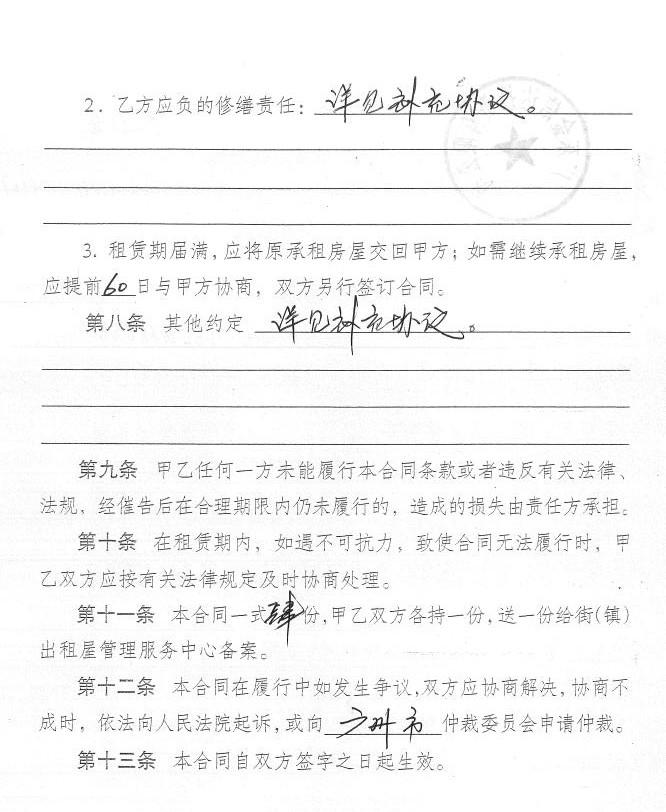 2. 乙方应负的修缮责任：详见补充协议。
3. 租赁期届满，应将原承租房屋交回甲方；如需继续承租房屋，
应提前60日与甲方协商，双方另行签订合同。
第八条 其他约定 详见补充协议。
第九条 甲乙任何一方未能履行本合同条款或者违反有关法律、
法规，经催告后在合理期限内仍未履行的，造成的损失由责任方承担。
第十条 在租赁期内，如遇不可抗力，致使合同无法履行时，甲
乙双方应按有关法律规定及时协商处理。
第十一条 本合同一式肆份，甲乙双方各持一份，送一份给街（镇）
出租屋管理服务中心备案。
第十二条 本合同在履行中如发生争议，双方应协商解决，协商不
成时，依法向人民法院起诉，或向 广州市 仲裁委员会申请仲裁。
第十三条 本合同自双方签字之日起生效。